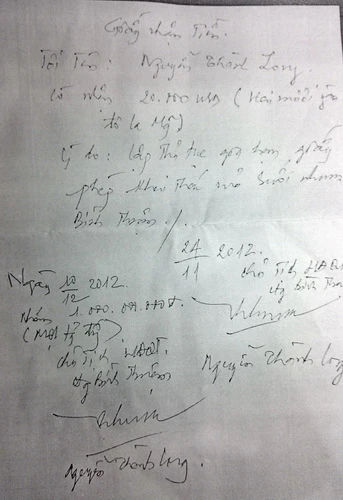 Giấy nhận Tiền.
Tôi Tên: Nguyễn Thành Long.
có nhận 20.000 USD (Hai mươi
đô la Mỹ)
Lý do: Lập Thủ tục gia hạn giấy
phép khai thác mỏ Suối nhum
Bình Thuận./.
24/11 2012.
chủ Tịch HĐQT
cty Bình Thuận
Nguyễn Thành Long
Ngày 10/12 2012
Nhận 1.000.000.000đ.
(Một tỷ đồng)
chủ Tịch HĐQT.
cty Bình Thuận
Nguyễn Thành Long.